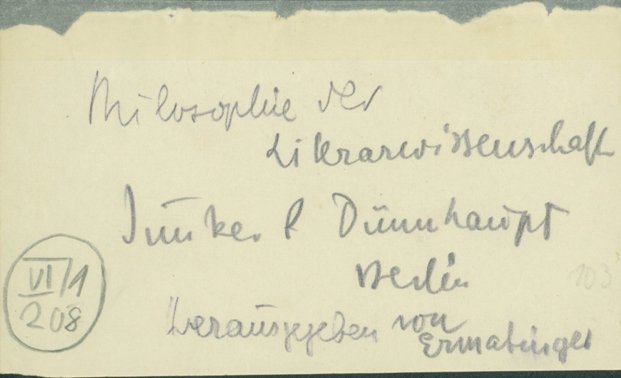 Philosophie der
Literarwissenschaft
Junker & Dünnhaupt
Berlin
103
Herausgegeben von
Ermatinger
VI/1
208